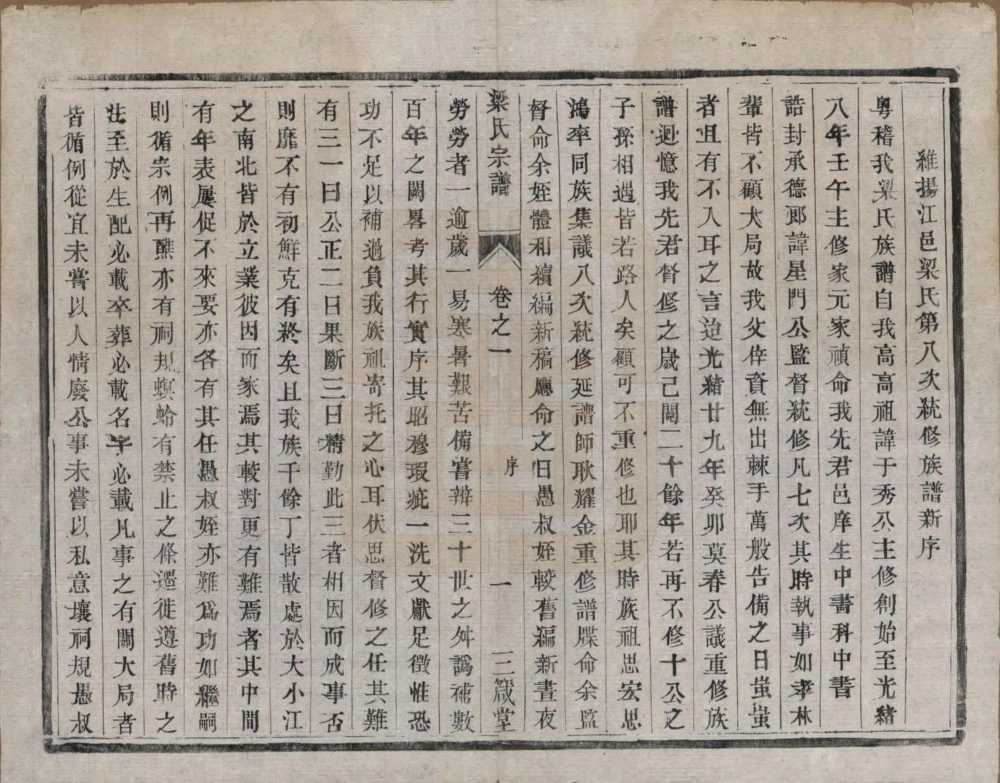 維揚江邑梁氏第八次統修族譜新序
粤稽我梁氏族譜自我高高祖諱于秀公主修創始至光緒
八年壬午主修家元家禎命我先君邑庠生中書科中書
誥封承德郎諱星門公監督統修凡七次其時執事如孝林
輩皆不顧大局故我父倖資無出棘手萬般告備之日蚩蚩
者且有不入耳之言迨光緒廿九年癸卯莫春公議重修族
譜迴憶我先君督修之歲已閱二十餘年若再不修十公之
子孫相遇皆若路人矣顧可不重修也耶其時族祖思宏思
鴻率同族集議八次統修延譜師耿耀金重修譜牒命余監
督命余姪體和續編新稿膺命之日愚叔姪較舊編新晝夜
梁氏宗譜
卷之一
序
一
三箴堂
勞勞者一逾歲一易寒暑艱苦備嘗辦三十世之舛譌補數
百年之闕畧考其行實序其昭穆瑕疵一洗文獻足徵惟恐
功不足以補過負我族祖寄托之心耳伏思督修之任其難
有三一曰公正二曰果斷三曰精勤此三者相因而成事否
則靡不有初鮮克有終矣且我族千餘丁皆散處於大小江
之南北皆於立業彼因而家焉其較對更有難焉者其中間
有年表屢促不來要亦各有其任愚叔姪亦難爲功如繼嗣
則循宗例再醮亦有祠規螟蛉有禁止之條遷徙遵舊時之
法至於生配必載卒葬必載名字必載凡事之有關大局者
皆循例從宜未嘗以人情廢公事未嘗以私意壞祠規愚叔